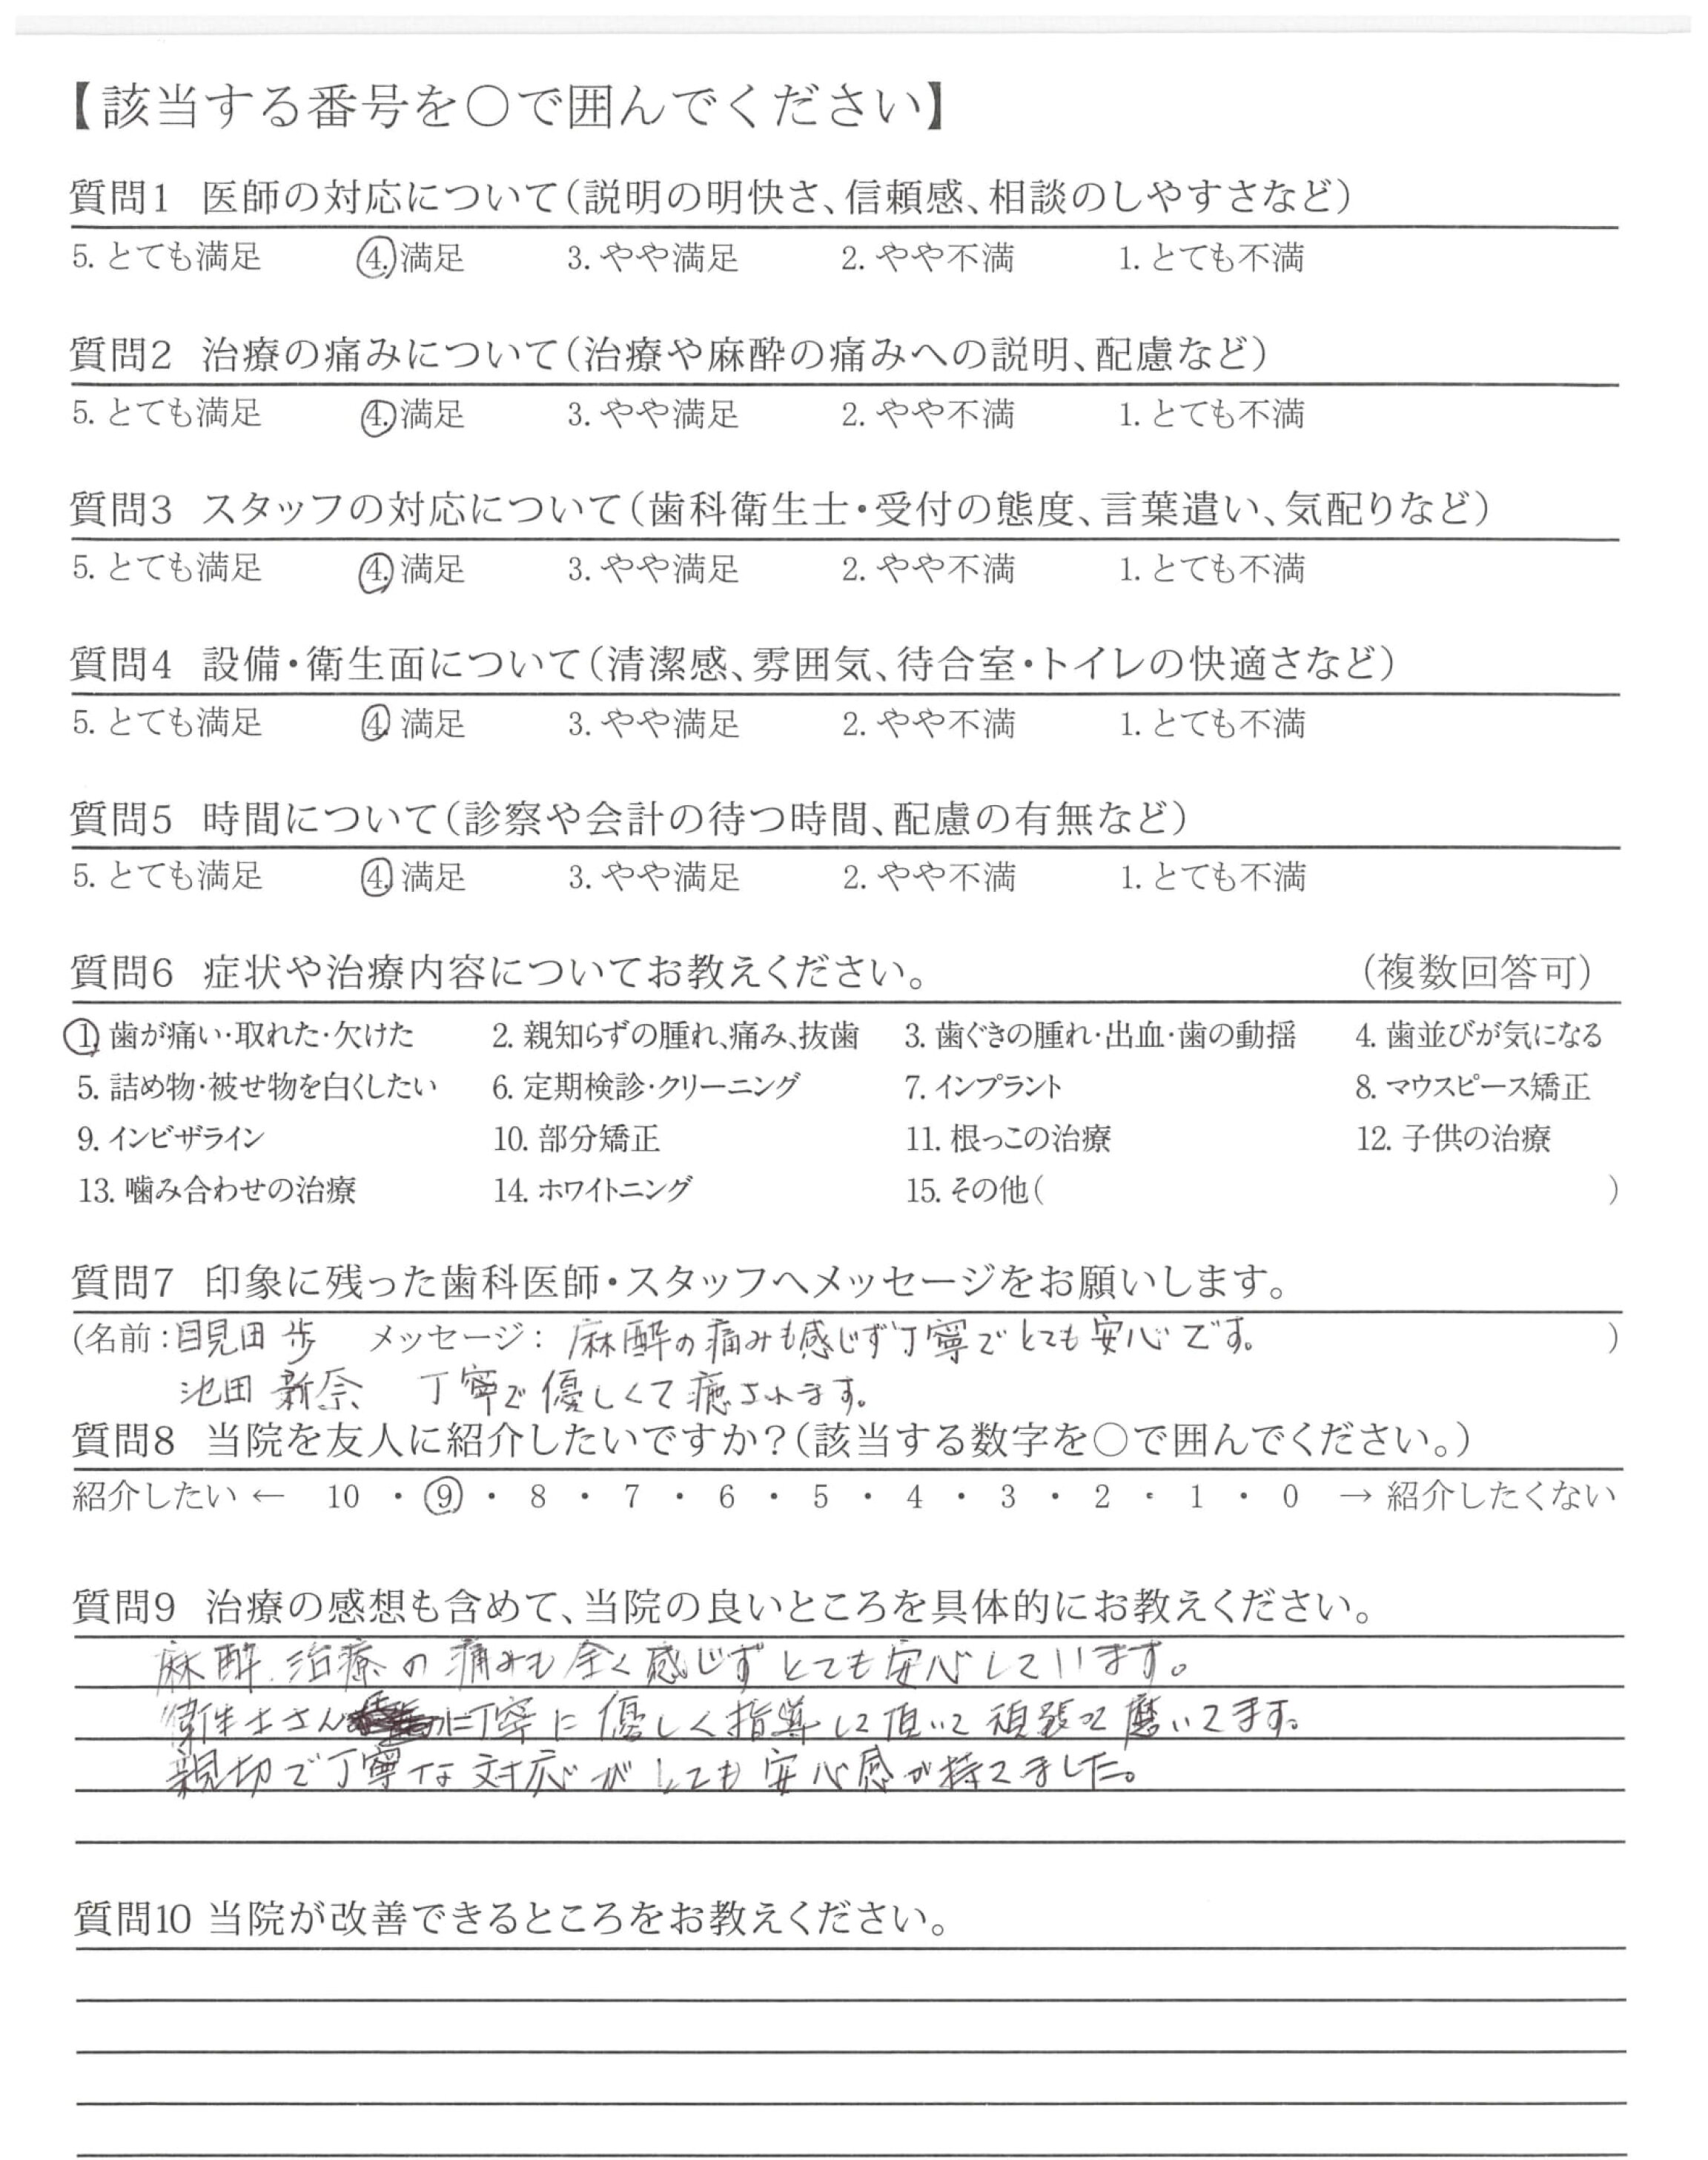 【該当する番号を○で囲んでください】
質問1 医師の対応について(説明の明快さ、信頼感、相談のしやすさなど)
5. とても満足 4. 満足 3. やや満足 2. やや不満 1. とても不満
質問2 治療の痛みについて(治療や麻酔の痛みへの説明、配慮など)
5. とても満足 4. 満足 3. やや満足 2. やや不満 1. とても不満
質問3 スタッフの対応について(歯科衛生士・受付の態度、言葉遣い、気配りなど)
5. とても満足 4. 満足 3. やや満足 2. やや不満 1. とても不満
質問4 設備・衛生面について(清潔感、雰囲気、待合室・トイレの快適さなど)
5. とても満足 4. 満足 3. やや満足 2. やや不満 1. とても不満
質問5 時間について(診察や会計の待つ時間、配慮の有無など)
5. とても満足 4. 満足 3. やや満足 2. やや不満 1. とても不満
質問6 症状や治療内容についてお教えください。 (複数回答可)
1. 歯が痛い・取れた・欠けた 2. 親知らずの腫れ、痛み、抜歯 3. 歯ぐきの腫れ・出血・歯の動揺 4. 歯並びが気になる
5. 詰め物・被せ物を白くしたい 6. 定期検診・クリーニング 7. インプラント 8. マウスピース矯正
9. インビザライン 10. 部分矯正 11. 根っこの治療 12. 子供の治療
13. 噛み合わせの治療 14. ホワイトニング 15. その他( )
質問7 印象に残った歯科医師・スタッフへメッセージをお願いします。
(名前:目見田 歩 メッセージ: 麻酔の痛みも感じず丁寧でとても安心です。 )
池田 新奈 丁寧で優しくて癒されます。
質問8 当院を友人に紹介したいですか?(該当する数字を○で囲んでください。)
紹介したい ← 10 ・ 9 ・ 8 ・ 7 ・ 6 ・ 5 ・ 4 ・ 3 ・ 2 ・ 1 ・ 0 → 紹介したくない
質問9 治療の感想も含めて、当院の良いところを具体的にお教えください。
麻酔、治療の痛みも全く感じずとても安心しています。
衛生士さんに丁寧に優しく指導して頂いて頑張って磨いてます。
親切で丁寧な対応がとても安心感が持てました。
質問10 当院が改善できるところをお教えください。